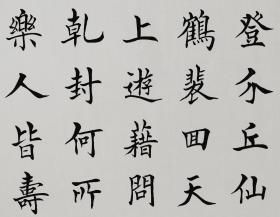 登介丘仙
鶴裴回天
上遊藉問
乾封何所
樂人皆壽